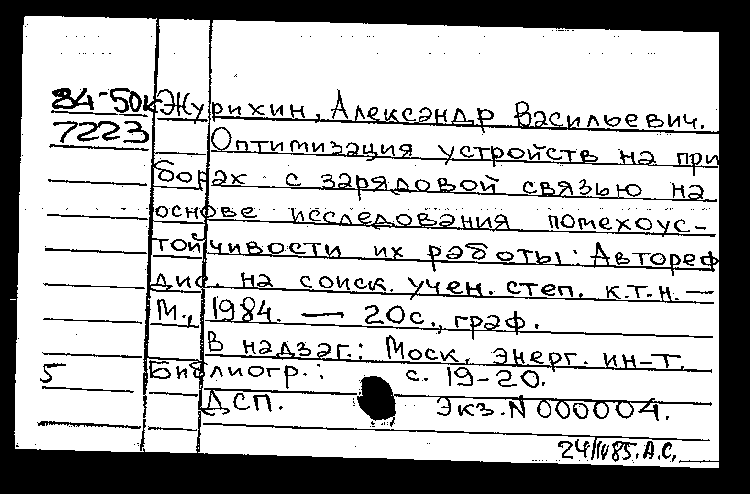 84-50к Журихин, Александр Васильевич.
7223 Оптимизация устройств на при
борах с зарядовой связью на
основе исследования помехоус-
тойчивости их работы: Автореф
дис. на соиск. учен. степ. к.т.н. —
М., 1984. — 20с., граф.
В надзаг.: Моск. энерг. ин-т.
5 Библиогр.: с. 19-20.
ДСП. Экз. N 000004.
24/IV85. А.С.